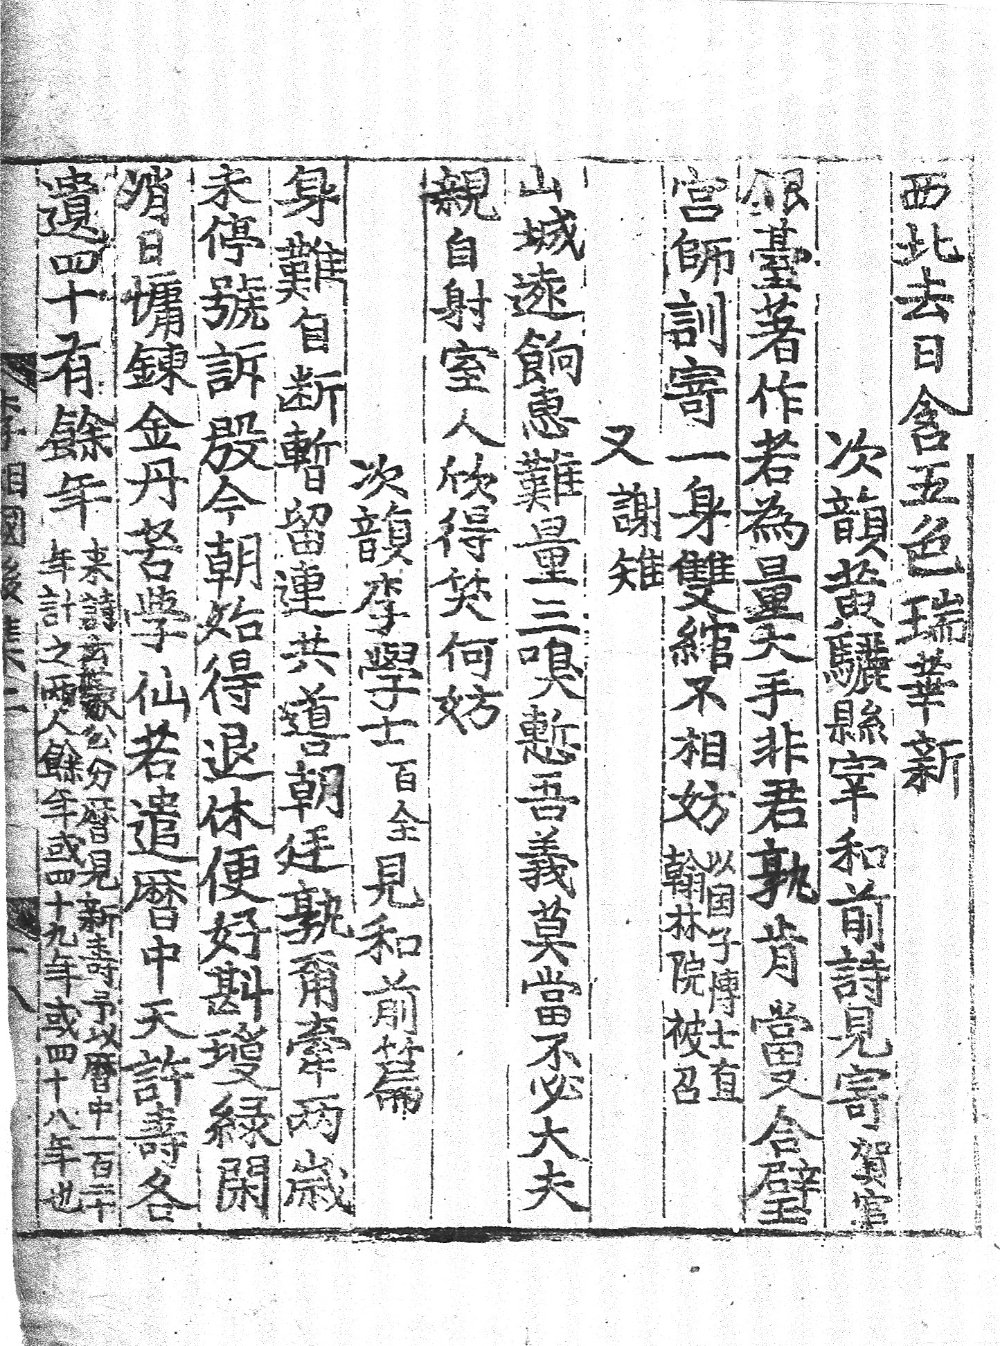 西北去日含五色瑞華新
次韻黃驪縣宰和前詩見寄賀官
銀臺著作若為量大手非君孰肯當又合壁
宮師訓寄一身雙綰不相妨以国子博士直翰林院被召
又謝雉
山城遠餉惠難量三嗅慙吾義莫當不必大夫
親自射室人欣得笑何妨
次韻李學士百全見和前篇
身難自断暫留連共噵朝廷孰爾牽兩歲
未停號訴殷今朝始得退休便好斟瓊緑閑
消日慵鍊金丹苦學仙若遣曆中天許壽各
遺四十有餘年来詩云公分曆見新壽予以曆中一百二十年計之兩人餘年或四十九年或四十八年也
李相國後集二
十八